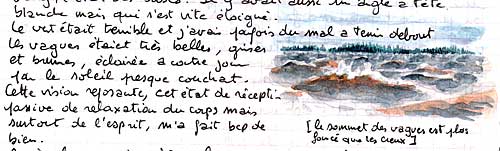 blanche mais qui s'est vite éloigné.
Le vent était terrible et j'avais parfois du mal à tenir debout
Les vagues étaient très belles, grises
et brunes, éclairées à contre jour
par le soleil presque couchant.
Cette vision reposante, cet état de réception
passive de relaxation du corps mais
surtout de l'esprit, m'a fait bcp de
bien.
[le sommet des vagues est plus
foncé que les creux]